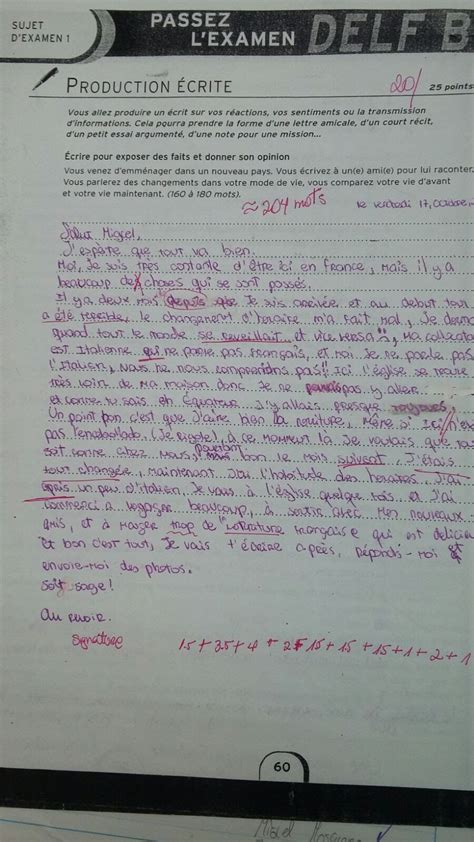 SUJET
D'EXAMEN 1
PASSEZ
L'EXAMEN
DELF B
PRODUCTION ÉCRITE
20/
25 points
Vous allez produire un écrit sur vos réactions, vos sentiments ou la transmission
d'informations. Cela pourra prendre la forme d'une lettre amicale, d'un court récit,
d'un petit essai argumenté, d'une note pour une mission...
Écrire pour exposer des faits et donner son opinion
Vous venez d'emménager dans un nouveau pays. Vous écrivez à un(e) ami(e) pour lui raconter.
Vous parlerez des changements dans votre mode de vie, vous comparez votre vie d'avant
et votre vie maintenant. (160 à 180 mots)
≈ 204 mots
le vendredi 17, octobre,
Salut Miguel,
J'espère que tout va bien.
Moi, Je suis très contante d'être ici en france, Mais il y a
beaucoup de choses qui se sont passés.
Il y a deux mois depuis que Je suis arrivée et au debut tout
a été terrible, le changement d'horaire m'a fait mal, Je dormais
quand tout le monde se reveillait et vice versa, Ma collocataire
est Italienne qui ne parle pas français, et moi Je ne parle pas
l'Italien, nous ne nous comprendions pas!! Ici l'église se trouve
très loin de Ma maison donc Je ne pas y aller
et comme tu sais en Équateur J'y allais presque toujours
Un point bon c'est que J'aime bien la nourriture, Même si Ici n'exi
pas l'encebollado (Je rigole), à ce moment la Je voulais que
soit comme chez nous, bon le mois suivant, J'étais
tout changée, maintenant J'ai l'habitude des horaires, J'ai
apris un peu d'italien, Je vais à l'église quelque fois et J'ai
commencé a voyager beaucoup, à sortir avec Mes nouveaux
amis, et à manger trop de nourriture française qui est délicieu
et bon c'est tout, Je vais t'écrire après, réponds-moi et
envoie-moi des photos.
soit sage!
Au revoir.
signature
1.5 + 3.5 + 4 + 2.5 + 1.5 + 1.5 + 1.5 + 1 + 2 + 1
60